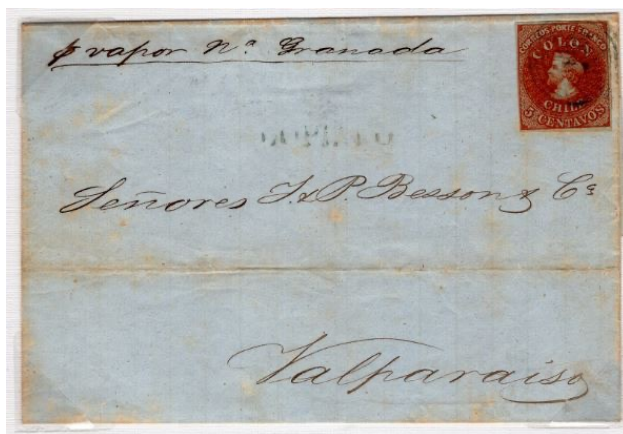 p vapor Na. Granada
CORREOS PORTE FRANCO
COLON
CHILE
5 CENTAVOS
Señores J. & P. Besson & Ca
Valparaiso